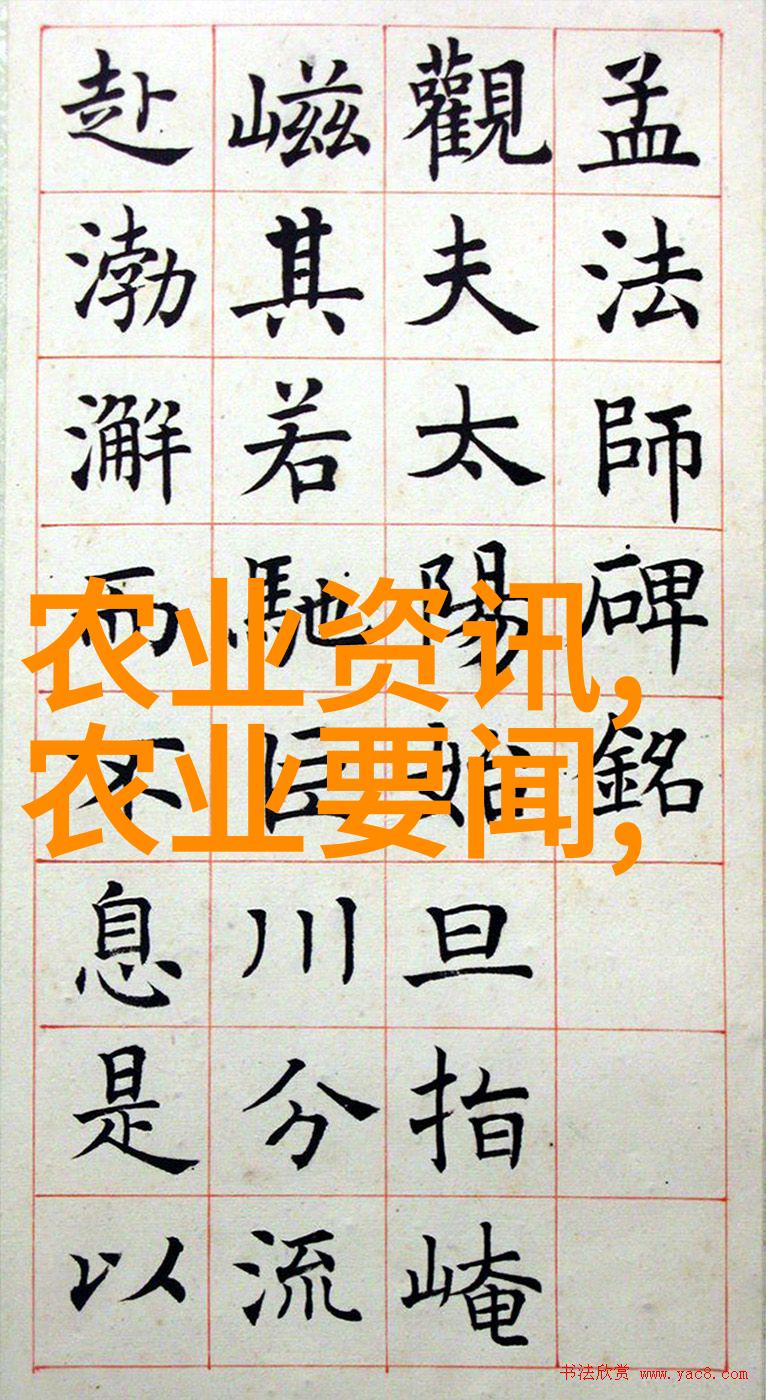 孟法師碑銘
觀夫太陽始旦指崦
嵫其若馳巨川分流
赴渤澥而不息是以
农业资讯,
农业要闻,
书法欣赏 www.yac8.com